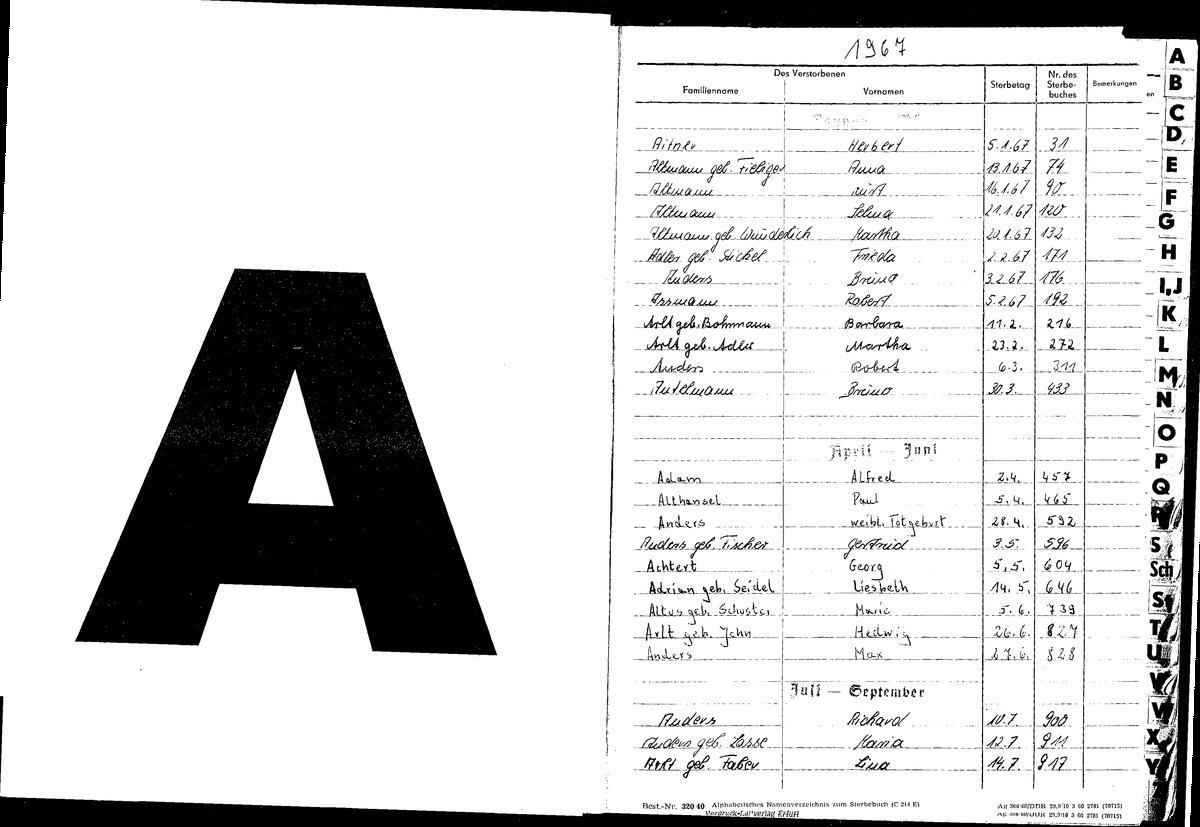 A
1967
Des Verstorbenen
Familienname Vornamen Sterbetag Nr. des Sterbe-buches Bemerkungen
Herbert 5.1.67 31
Altmann geb. Fiebiger Anna 13.1.67 74
Altmann Kurt 16.1.67 90
Altmann Selma 21.1.67 120
Altmann geb. Wunderlich Martha 20.1.67 132
Adler geb. Stickel Frieda 2.2.67 171
Anders Bruno 3.2.67 176
Assmann Robert 5.2.67 192
Arlt geb. Bohrmann Barbara 11.2. 216
Arlt geb. Adler Martha 23.2. 272
Anders Robert 6.3. 311
Antelmann Bruno 30.3. 433
April — Juni
Adam Alfred 2.4. 457
Althansel Paul 5.4. 465
Anders weibl. Totgeburt 28.4. 592
Anders geb. Fischer Gertrud 3.5. 596
Achtert Georg 5.5. 604
Adrian geb. Seidel Liesbeth 14.5. 646
Altus geb. Schuster Marie 5.6. 739
Arlt geb. John Hedwig 26.6. 827
Anders Max 27.6. 828
Juli — September
Anders Richard 10.7. 900
Anders geb. Lasse Maria 12.7. 911
Arlt geb. Faber Lina 14.7. 917
Best.-Nr. 320 40 Alphabetisches Namenverzeichnis zum Sterbebuch (C 214 E)
Vordruck-Leitverlag Erfurt
A
B
C
D
E
F
G
H
I,J
K
L
M
N
O
P
Q
R
S
Sch
St
T
U
V
W
X
Y